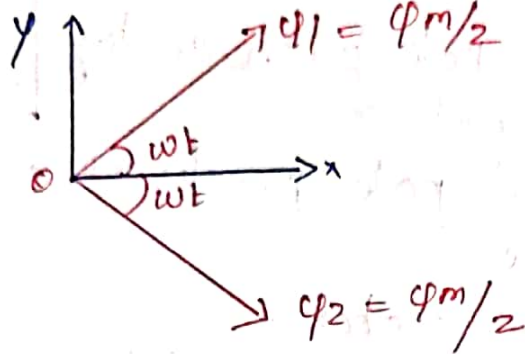 y
φ1 = φm/2
ωt
O
x
ωt
φ2 = φm/2